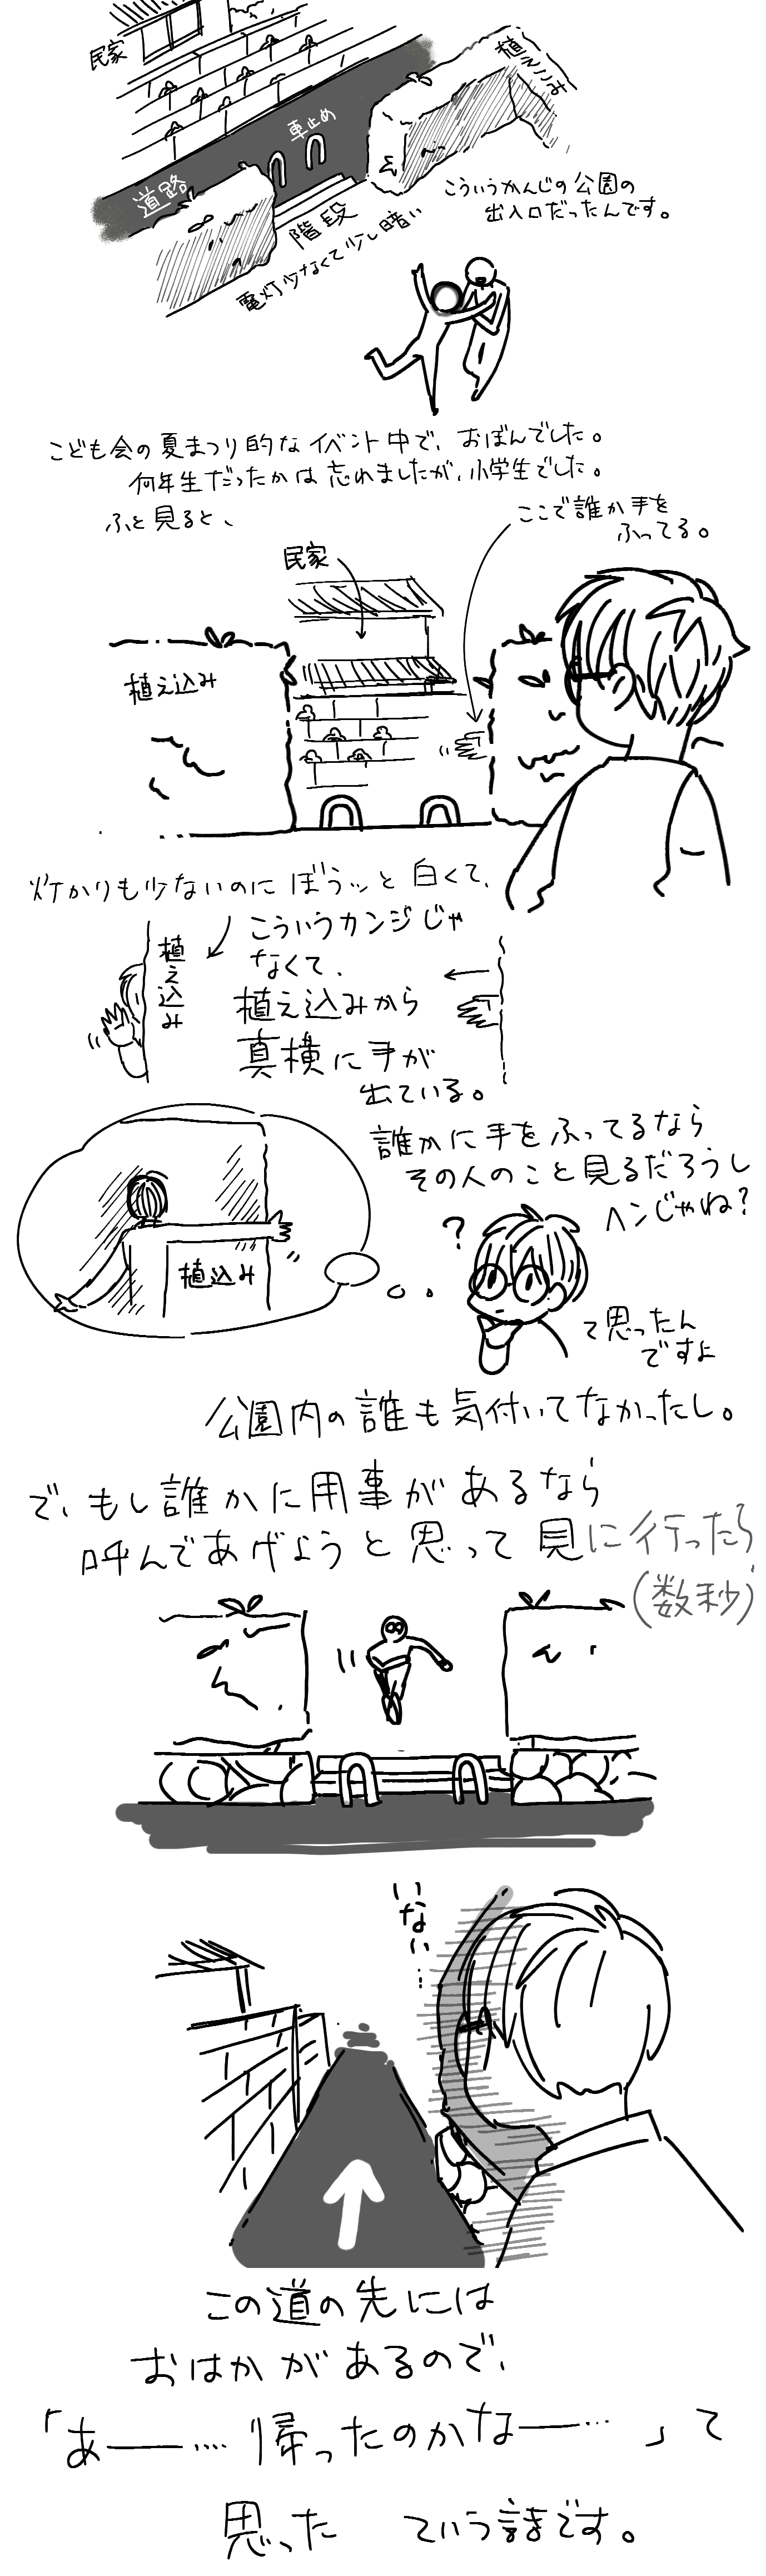 民家
植えこみ
車止め
道路
階段
電灯少なくて少し暗い
こういうかんじの公園の
出入口だったんです。
こども会の夏まつり的なイベント中で、おぼんでした。
何年生だったかは忘れましたが、小学生でした。
ふと見ると、
ここで誰か手を
ふってる。
民家
植え込み
灯かりも少ないのにぼうッと白くて、
植え込み
こういうカンジじゃ
なくて、
植え込みから
真横に手が
出ている。
誰かに手をふってるなら
その人のこと見るだろうし
ヘンじゃね?
?
植込み
て思ったん
ですよ
公園内の誰も気付いてなかったし。
で、もし誰かに用事があるなら
呼んであげようと思って見に行ったら
(数秒)
いない…
この道の先には
おはかがあるので、
「あー……帰ったのかなー…」て
思った ていう話です。